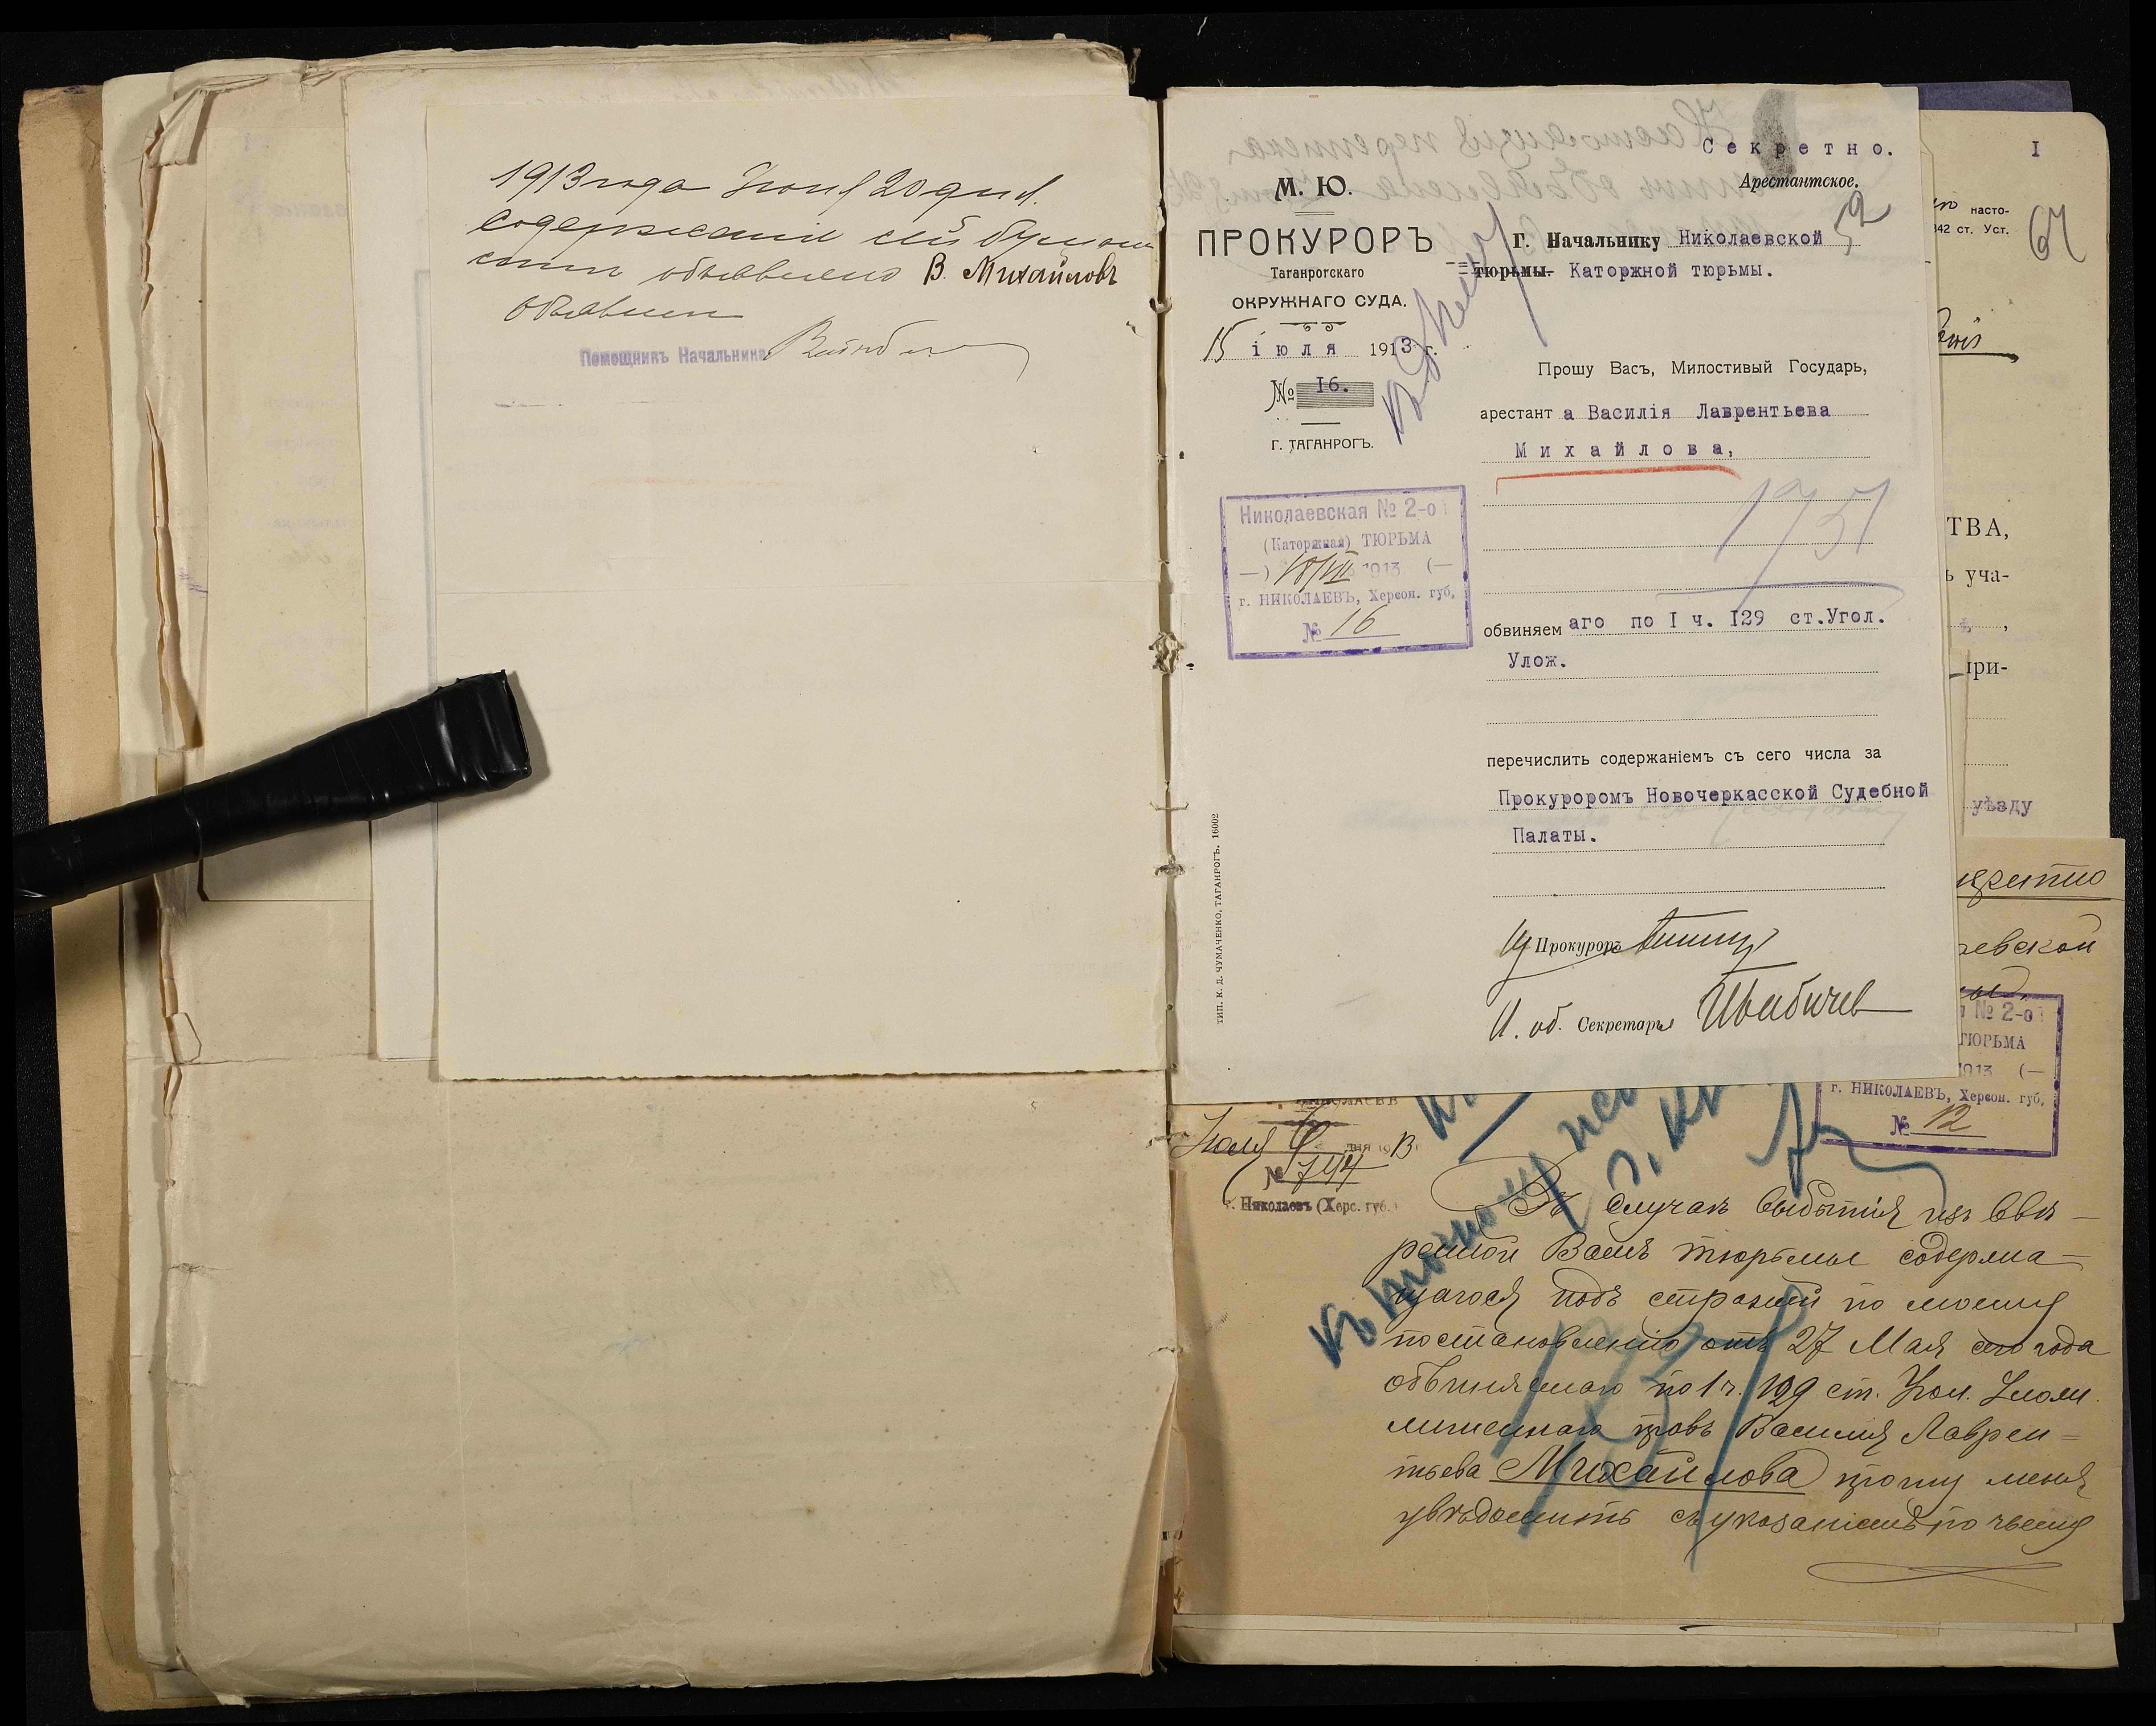 1913 года Июля 20 дня.
содержание сей бумаги
мнѣ объявлено В. Михайловъ
Объявилъ
Помощникъ Начальника
Секретно.
Арестантское.
52
М. Ю.
ПРОКУРОРЪ
Таганрогскаго
ОКРУЖНАГО СУДА.
15 іюля 1913 г.
№ 16.
Г. ТАГАНРОГЪ.
Г. Начальнику Николаевской
тюрьмы. Каторжной тюрьмы.
Прошу Васъ, Милостивый Государь,
арестант а Василія Лаврентьева
Михайлова,
обвиняем аго по I ч. I29 ст.Угол.
Улож.
перечислить содержаніемъ съ сего числа за
Прокуроромъ Новочеркасской Судебной
Палаты.
Прокуроръ
И. об. Секретаря
Николаевская № 2-о
(Каторжная) ТЮРЬМА
—) 18/VII 1913 (—
г. НИКОЛАЕВЪ, Херсон. губ.
№ 16
ТИП. К. Д. ЧУМАЧЕНКО, ТАГАНРОГЪ. 16002
I
насто-
342 ст. Уст.
64
ТВА,
ь уча-
при-
уѣзду
№ 2-о
ТЮРЬМА
1913 (—
г. НИКОЛАЕВЪ, Херсон. губ.
№ 12
Июля
№ 744
г. Николаевъ (Херс. губ.)
Въ случаѣ выбытія изъ ввѣ-
ренной Вамъ тюрьмы содержа-
щагося подъ стражей по моему
постановленію отъ 27 Мая сего года
обвиняемаго по 1 ч. 129 ст. Угол. Улож.
лишеннаго правъ Василія Лаврен-
тьева Михайлова прошу меня
увѣдомить съ указаніемъ по чьему